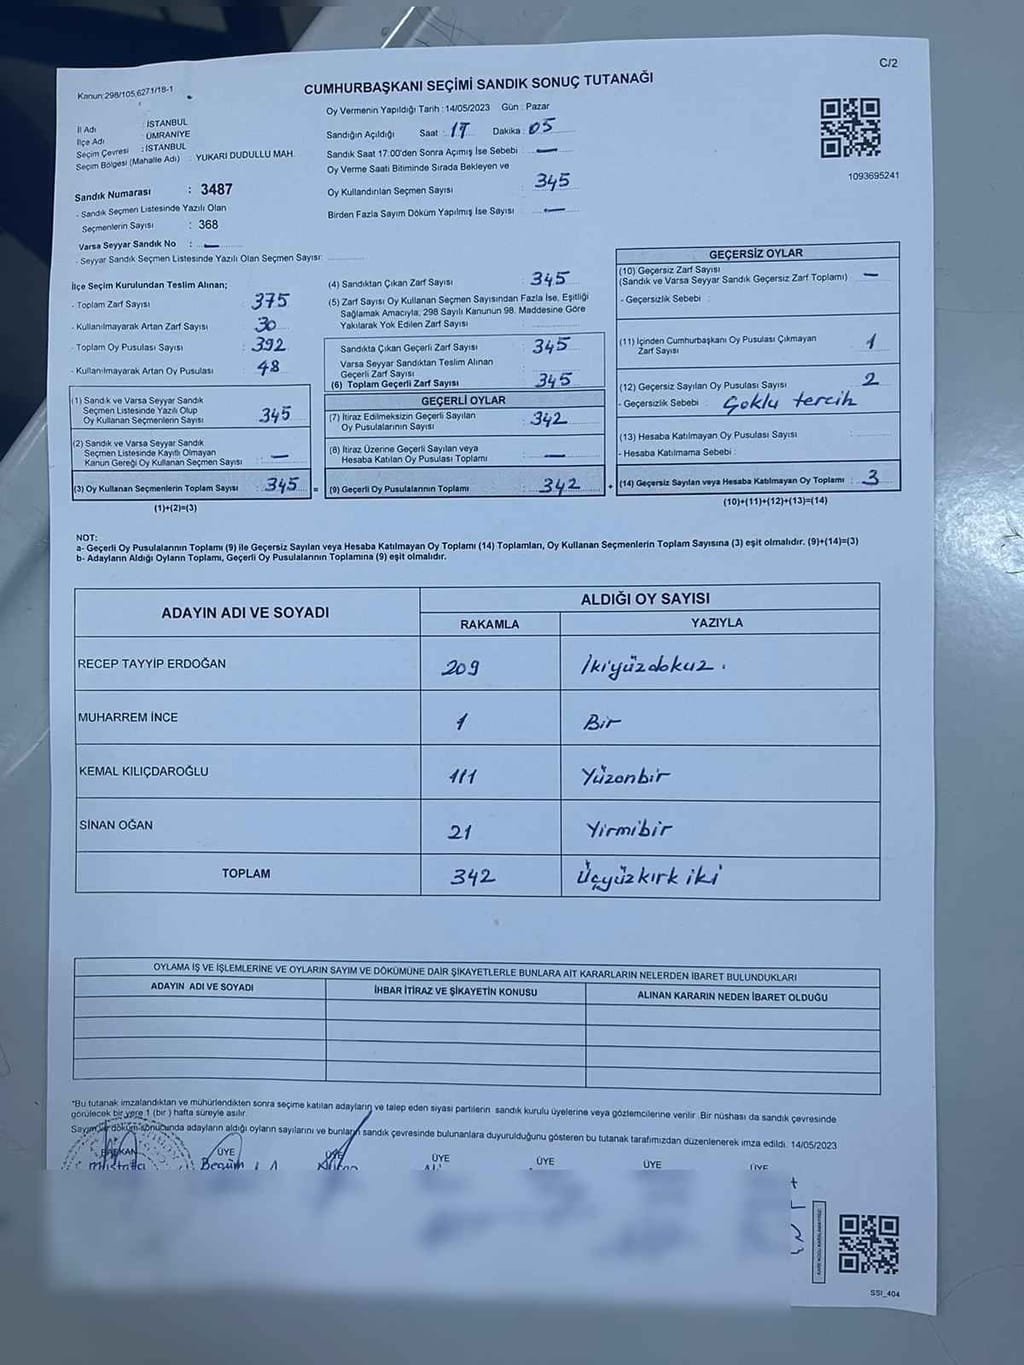 Kanun:298/105,6271/18-1
C/2
CUMHURBAŞKANI SEÇİMİ SANDIK SONUÇ TUTANAĞI
Oy Vermenin Yapıldığı Tarih : 14/05/2023 Gün : Pazar
İl Adı : İSTANBUL
İlçe Adı : ÜMRANİYE
Seçim Çevresi : İSTANBUL
Seçim Bölgesi (Mahalle Adı) : YUKARI DUDULLU MAH.
Sandığın Açıldığı Saat : 17 Dakika : 05
Sandık Saat 17:00'den Sonra Açımış İse Sebebi : —
Oy Verme Saati Bitiminde Sırada Bekleyen ve
Oy Kullandırılan Seçmen Sayısı : 345
Birden Fazla Sayım Döküm Yapılmış İse Sayısı : —
1093695241
Sandık Numarası : 3487
- Sandık Seçmen Listesinde Yazılı Olan
Seçmenlerin Sayısı : 368
Varsa Seyyar Sandık No : —
- Seyyar Sandık Seçmen Listesinde Yazılı Olan Seçmen Sayısı:
İlçe Seçim Kurulundan Teslim Alınan;
- Toplam Zarf Sayısı : 375
- Kullanılmayarak Artan Zarf Sayısı : 30
- Toplam Oy Pusulası Sayısı : 392
- Kullanılmayarak Artan Oy Pusulası : 48
(1) Sandık ve Varsa Seyyar Sandık
Seçmen Listesinde Yazılı Olup
Oy Kullanan Seçmenlerin Sayısı : 345
(2) Sandık ve Varsa Seyyar Sandık
Seçmen Listesinde Kayıtlı Olmayan
Kanun Gereği Oy Kullanan Seçmen Sayısı : —
(3) Oy Kullanan Seçmenlerin Toplam Sayısı : 345 =
(1)+(2)=(3)
(4) Sandıktan Çıkan Zarf Sayısı : 345
(5) Zarf Sayısı Oy Kullanan Seçmen Sayısından Fazla İse, Eşitliği
Sağlamak Amacıyla, 298 Sayılı Kanunun 98. Maddesine Göre
Yakılarak Yok Edilen Zarf Sayısı :
Sandıkta Çıkan Geçerli Zarf Sayısı : 345
Varsa Seyyar Sandıktan Teslim Alınan
Geçerli Zarf Sayısı
(6) Toplam Geçerli Zarf Sayısı : 345
GEÇERLİ OYLAR
(7) İtiraz Edilmeksizin Geçerli Sayılan
Oy Pusulalarının Sayısı : 342
(8) İtiraz Üzerine Geçerli Sayılan veya
Hesaba Katılan Oy Pusulası Toplamı : —
(9) Geçerli Oy Pusulalarının Toplamı : 342 +
GEÇERSİZ OYLAR
(10) Geçersiz Zarf Sayısı
(Sandık ve Varsa Seyyar Sandık Geçersiz Zarf Toplamı) : —
- Geçersizlik Sebebi :
(11) İçinden Cumhurbaşkanı Oy Pusulası Çıkmayan
Zarf Sayısı : 1
(12) Geçersiz Sayılan Oy Pusulası Sayısı : 2
- Geçersizlik Sebebi : Çoklu tercih
(13) Hesaba Katılmayan Oy Pusulası Sayısı :
- Hesaba Katılmama Sebebi :
(14) Geçersiz Sayılan veya Hesaba Katılmayan Oy Toplamı : 3
(10)+(11)+(12)+(13)=(14)
NOT:
a- Geçerli Oy Pusulalarının Toplamı (9) ile Geçersiz Sayılan veya Hesaba Katılmayan Oy Toplamı (14) Toplamları, Oy Kullanan Seçmenlerin Toplam Sayısına (3) eşit olmalıdır. (9)+(14)=(3)
b- Adayların Aldığı Oyların Toplamı, Geçerli Oy Pusulalarının Toplamına (9) eşit olmalıdır.
ADAYIN ADI VE SOYADI
ALDIĞI OY SAYISI
RAKAMLA YAZIYLA
RECEP TAYYİP ERDOĞAN 209 İkiyüzdokuz.
MUHARREM İNCE 1 Bir
KEMAL KILIÇDAROĞLU 111 Yüzonbir
SİNAN OĞAN 21 Yirmibir
TOPLAM 342 Üçyüzkırk iki
OYLAMA İŞ VE İŞLEMLERİNE VE OYLARIN SAYIM VE DÖKÜMÜNE DAİR ŞİKAYETLERLE BUNLARA AİT KARARLARIN NELERDEN İBARET BULUNDUKLARI
ADAYIN ADI VE SOYADI İHBAR İTİRAZ VE ŞİKAYETİN KONUSU ALINAN KARARIN NEDEN İBARET OLDUĞU
*Bu tutanak imzalandıktan ve mühürlendikten sonra seçime katılan adayların ve talep eden siyasi partilerin sandık kurulu üyelerine veya gözlemcilerine verilir. Bir nüshası da sandık çevresinde
görülecek bir yere 1 (bir ) hafta süreyle asılır.
Sayım ve döküm sonucunda adayların aldığı oyların sayılarını ve bunların sandık çevresinde bulunanlara duyurulduğunu gösteren bu tutanak tarafımızdan düzenlenerek imza edildi. 14/05/2023
BAŞKAN ÜYE ÜYE ÜYE ÜYE ÜYE ÜYE
Mustafa Begüm
SSI_404